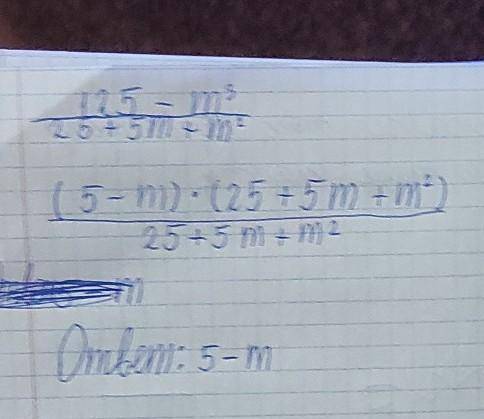 125 - m³
25 + 5m + m²
(5 - m) · (25 + 5m + m²)
25 + 5m + m²
m
Ответ: 5 - m